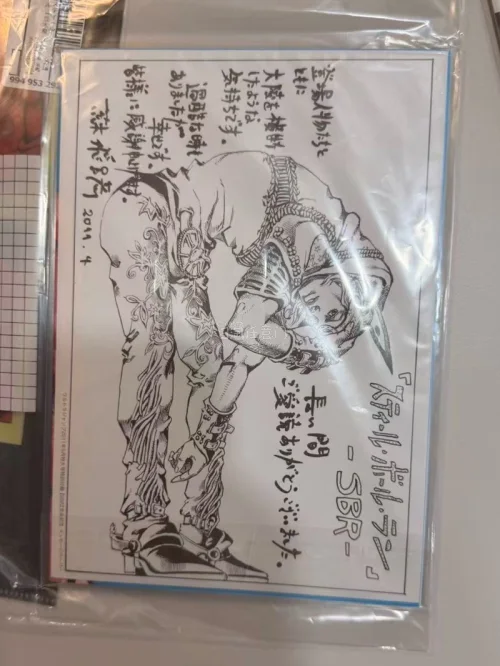 『スティール・ボール・ラン』
-SBR-
長い間
ご愛読ありがとうございました。
登場人物たちと
ともに
大陸を横断
したような
気持ちです。
過酷な時も
ありましたが
幸せです。
皆様に感謝
荒木飛呂彦
2011.4
994 953 29